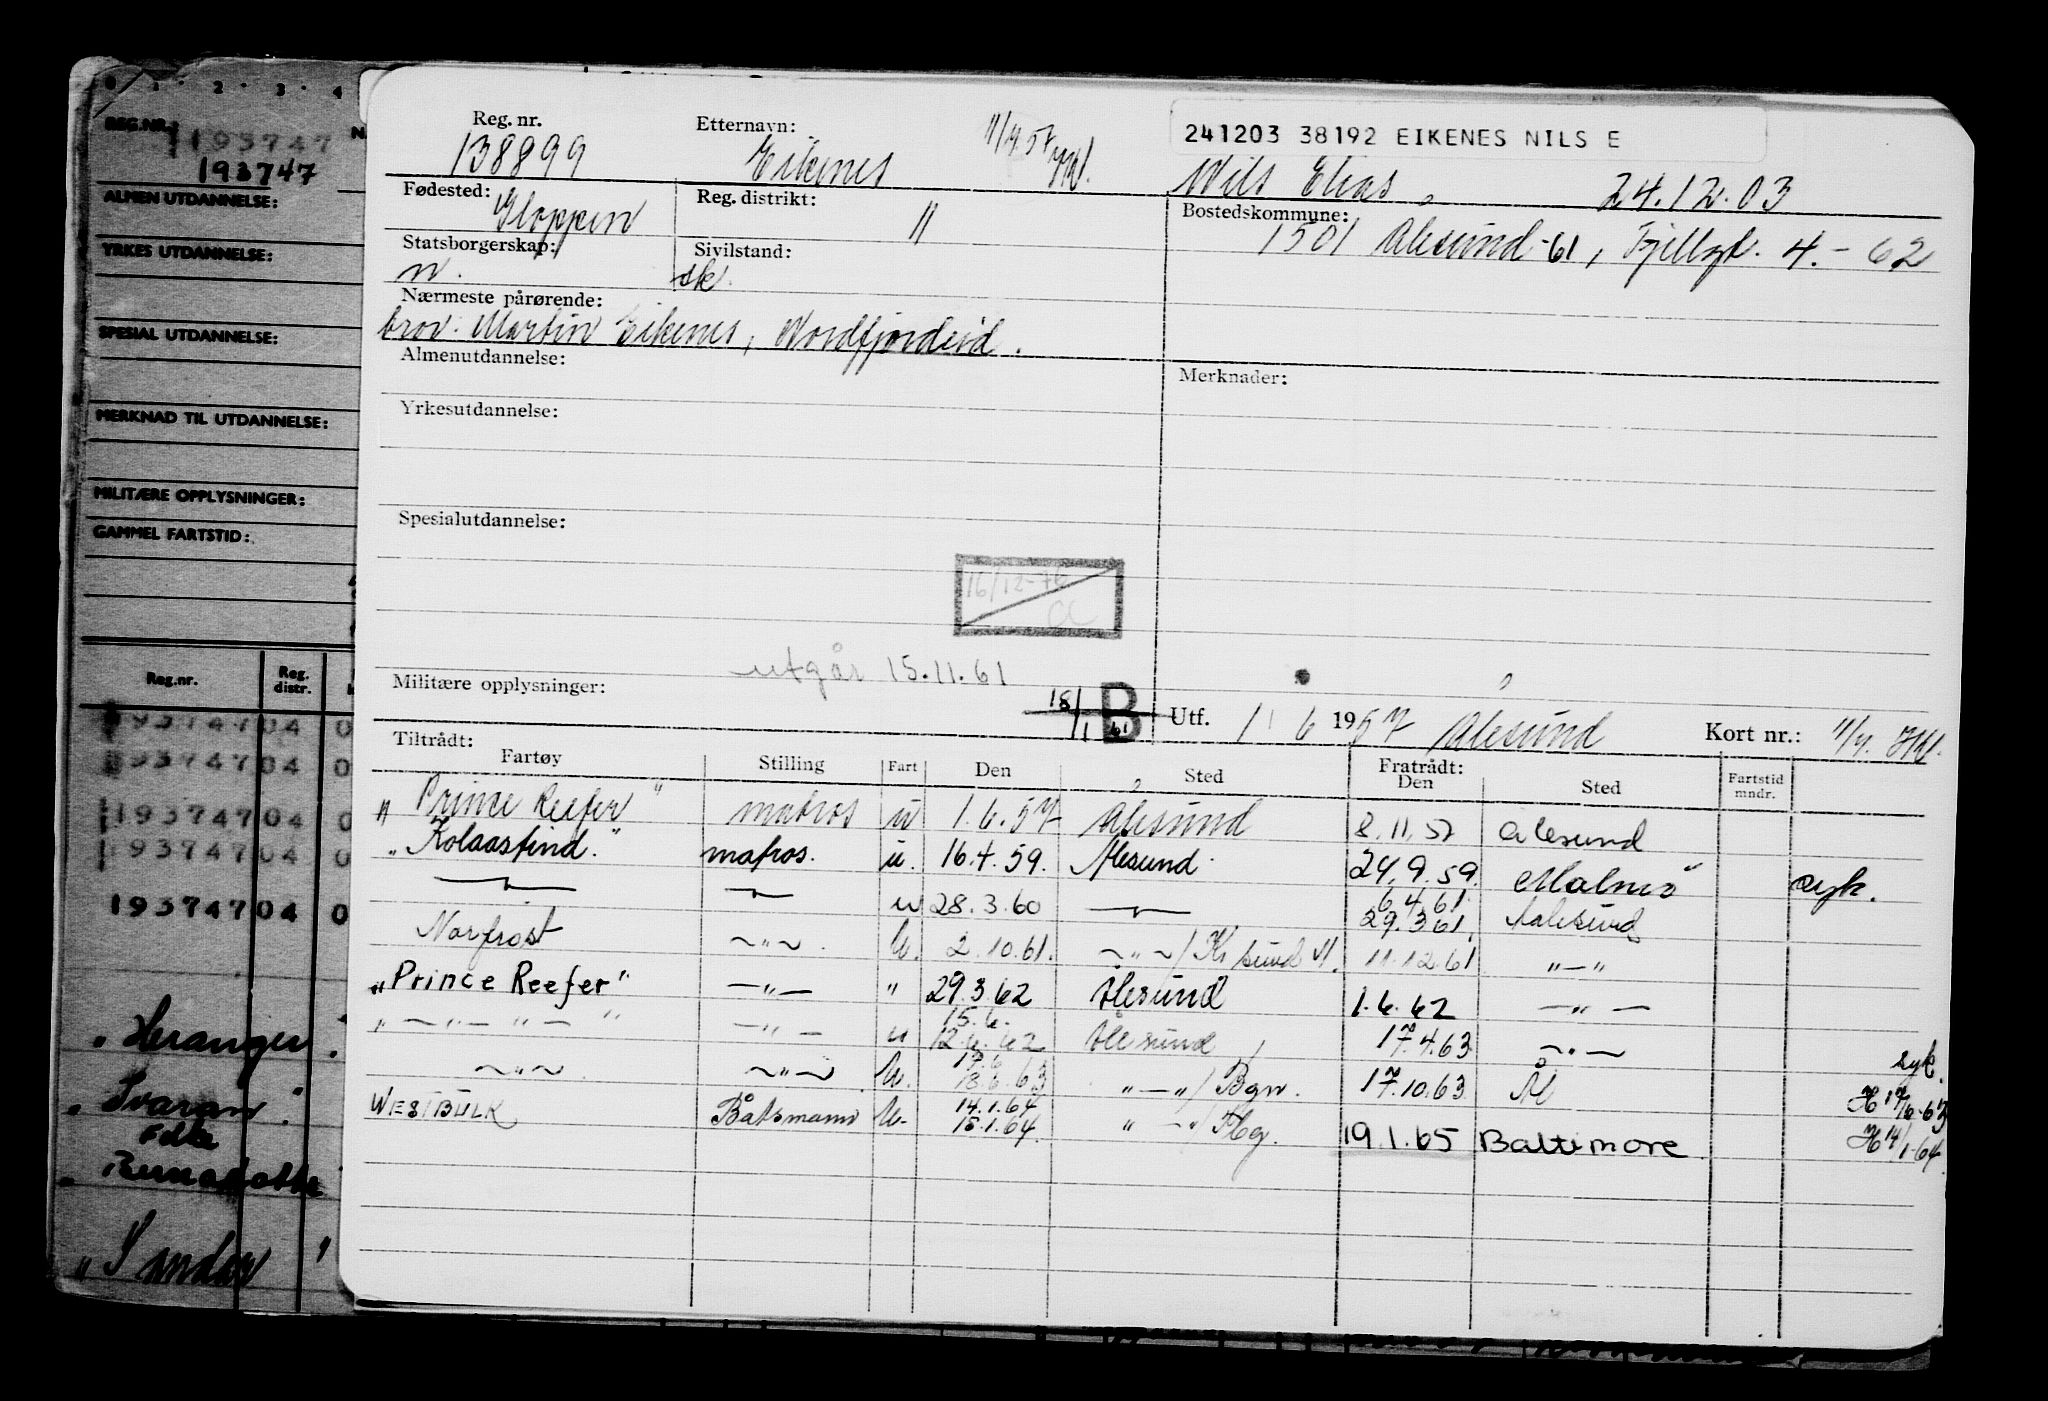 0 · 1 · 2 · 3 · 4
REG.NR.: 193747
193747
ALMEN UTDANNELSE:
YRKES UTDANNELSE:
SPESIAL UTDANNELSE:
MERKNAD TIL UTDANNELSE:
MILITÆRE OPPLYSNINGER:
GAMMEL FARTSTID:
Reg.nr. Reg. distr.
193747 04 0
193747 04 0
193747 04 0
193747 04 0
193747 04 0
"Heranger"
"Svaran"
Folke
"Bernadotte
"Sandar"
Reg. nr. Etternavn: 11/7.57 241203 38192 EIKENES NILS E
138899 Eikenes Nils Elias, 24.12.03
Fødested: Gloppen Reg. distrikt: 11 Bostedskommune: 1501 Ålesund-61, 4.-62
Statsborgerskap: n. Sivilstand: sk.
Nærmeste pårørende:
bror: Martin Eikenes, Nordfjordeid.
Almenutdannelse: Merknader:
Yrkesutdannelse:
Spesialutdannelse:
16/12-76
utgår 15.11.61
Militære opplysninger: 18/1 61 B B Utf. 1 6 1957 Ålesund Kort nr.: 11/7.
Tiltrådt: Fratrådt:
Fartøy Stilling Fart Den Sted Den Sted Fartstid mndr.
"Prince Reefer" matros u 1.6.57 Ålesund 8.11.57 Ålesund
"Kolaastind." matros. u. 16.4.59. Ålesund. 24.9.59. Malmö syk.
— " — — " — u 28.3.60 — " — 6.4.61. 29.3.61. Aalesund
Norfrost — " — . U. 2.10.61. — " — / Kr sund N. 11.12.61 " — "
"Prince Reefer" — " — " 29.3.62 Ålesund 1.6.62 — " —
" — " — " — " — " — u 15.6. 12.6.62 Ålesund 17.4.63 — " — syk.
— " — — " — U. 17.6 18.6.63 " — " / Bgn. 17.10.63 Ål H 17/6-63
WESTBULK Båtsmann U. 14.1.64 15.1.64. " — " / Hbg. 19.1.65 Baltimore H 14/1-64